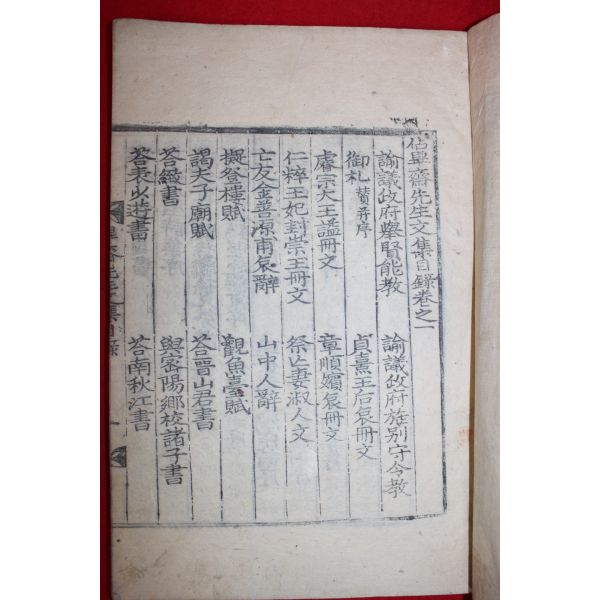 佔畢齋先生文集目録卷之一
諭議政府擧賢能教
諭議政府旌別守令教
御札 贊并序
貞熹王后哀冊文
睿宗大王諡冊文
章順嬪哀冊文
仁粹王妃封崇王冊文
祭亡妻淑人文
亡友金善源甫哀辭
山中人辭
擬登樓賦
觀魚臺賦
謁夫子廟賦
答晉山君書
答緻書
與密陽鄕校諸子書
答表少游書
答南秋江書
畢齋先生文集目録
一